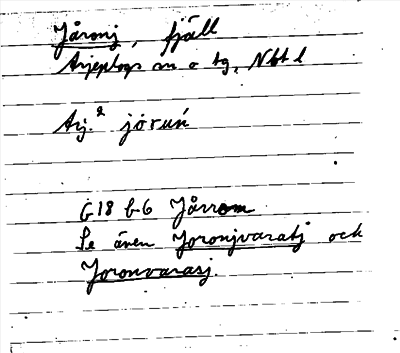 Jåronj, fjäll
Arjeplogs sn o tg, Nbt l
Arj.² jòruń
G18 b-6 Jårrom
Se även Joronjvaratj och
Joronvarasj.